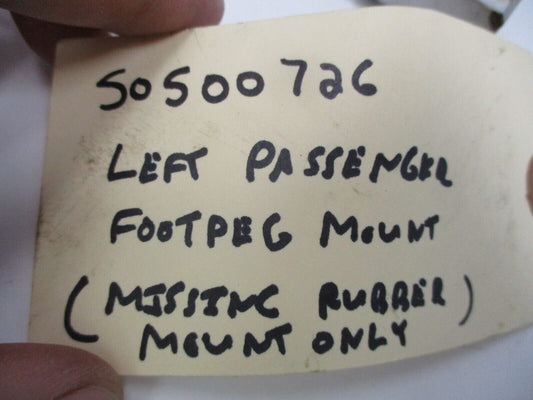 50500726
LEFT PASSENGER
FOOTPEG MOUNT
(MISSING RUBBER)
MOUNT ONLY